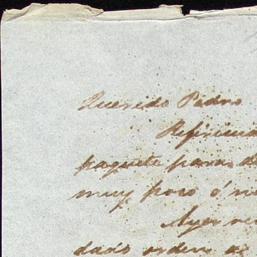 Querido Pedro
Refirien
paquete para d
muy poco ó n
Ayer re
dado orden de